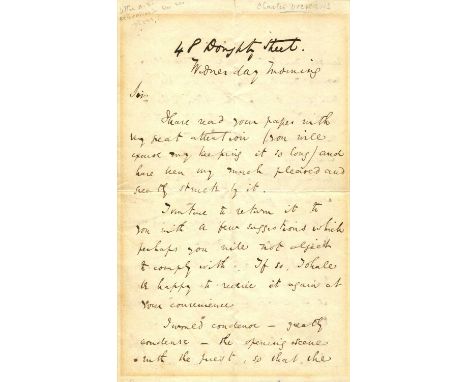 Charles Dickens
48 Doughty Street.
Wednesday Morning
Sir.
I have read your paper with
very great attention (you will
excuse my keeping it so long) and
have been very much pleased and
greatly struck by it.
I venture to return it to
you with a few suggestions which
perhaps you will not object
to comply with. If so, I shall
be happy to receive it again at
your convenience
I would condense – greatly
condense – the opening scene
with the priest, so that the